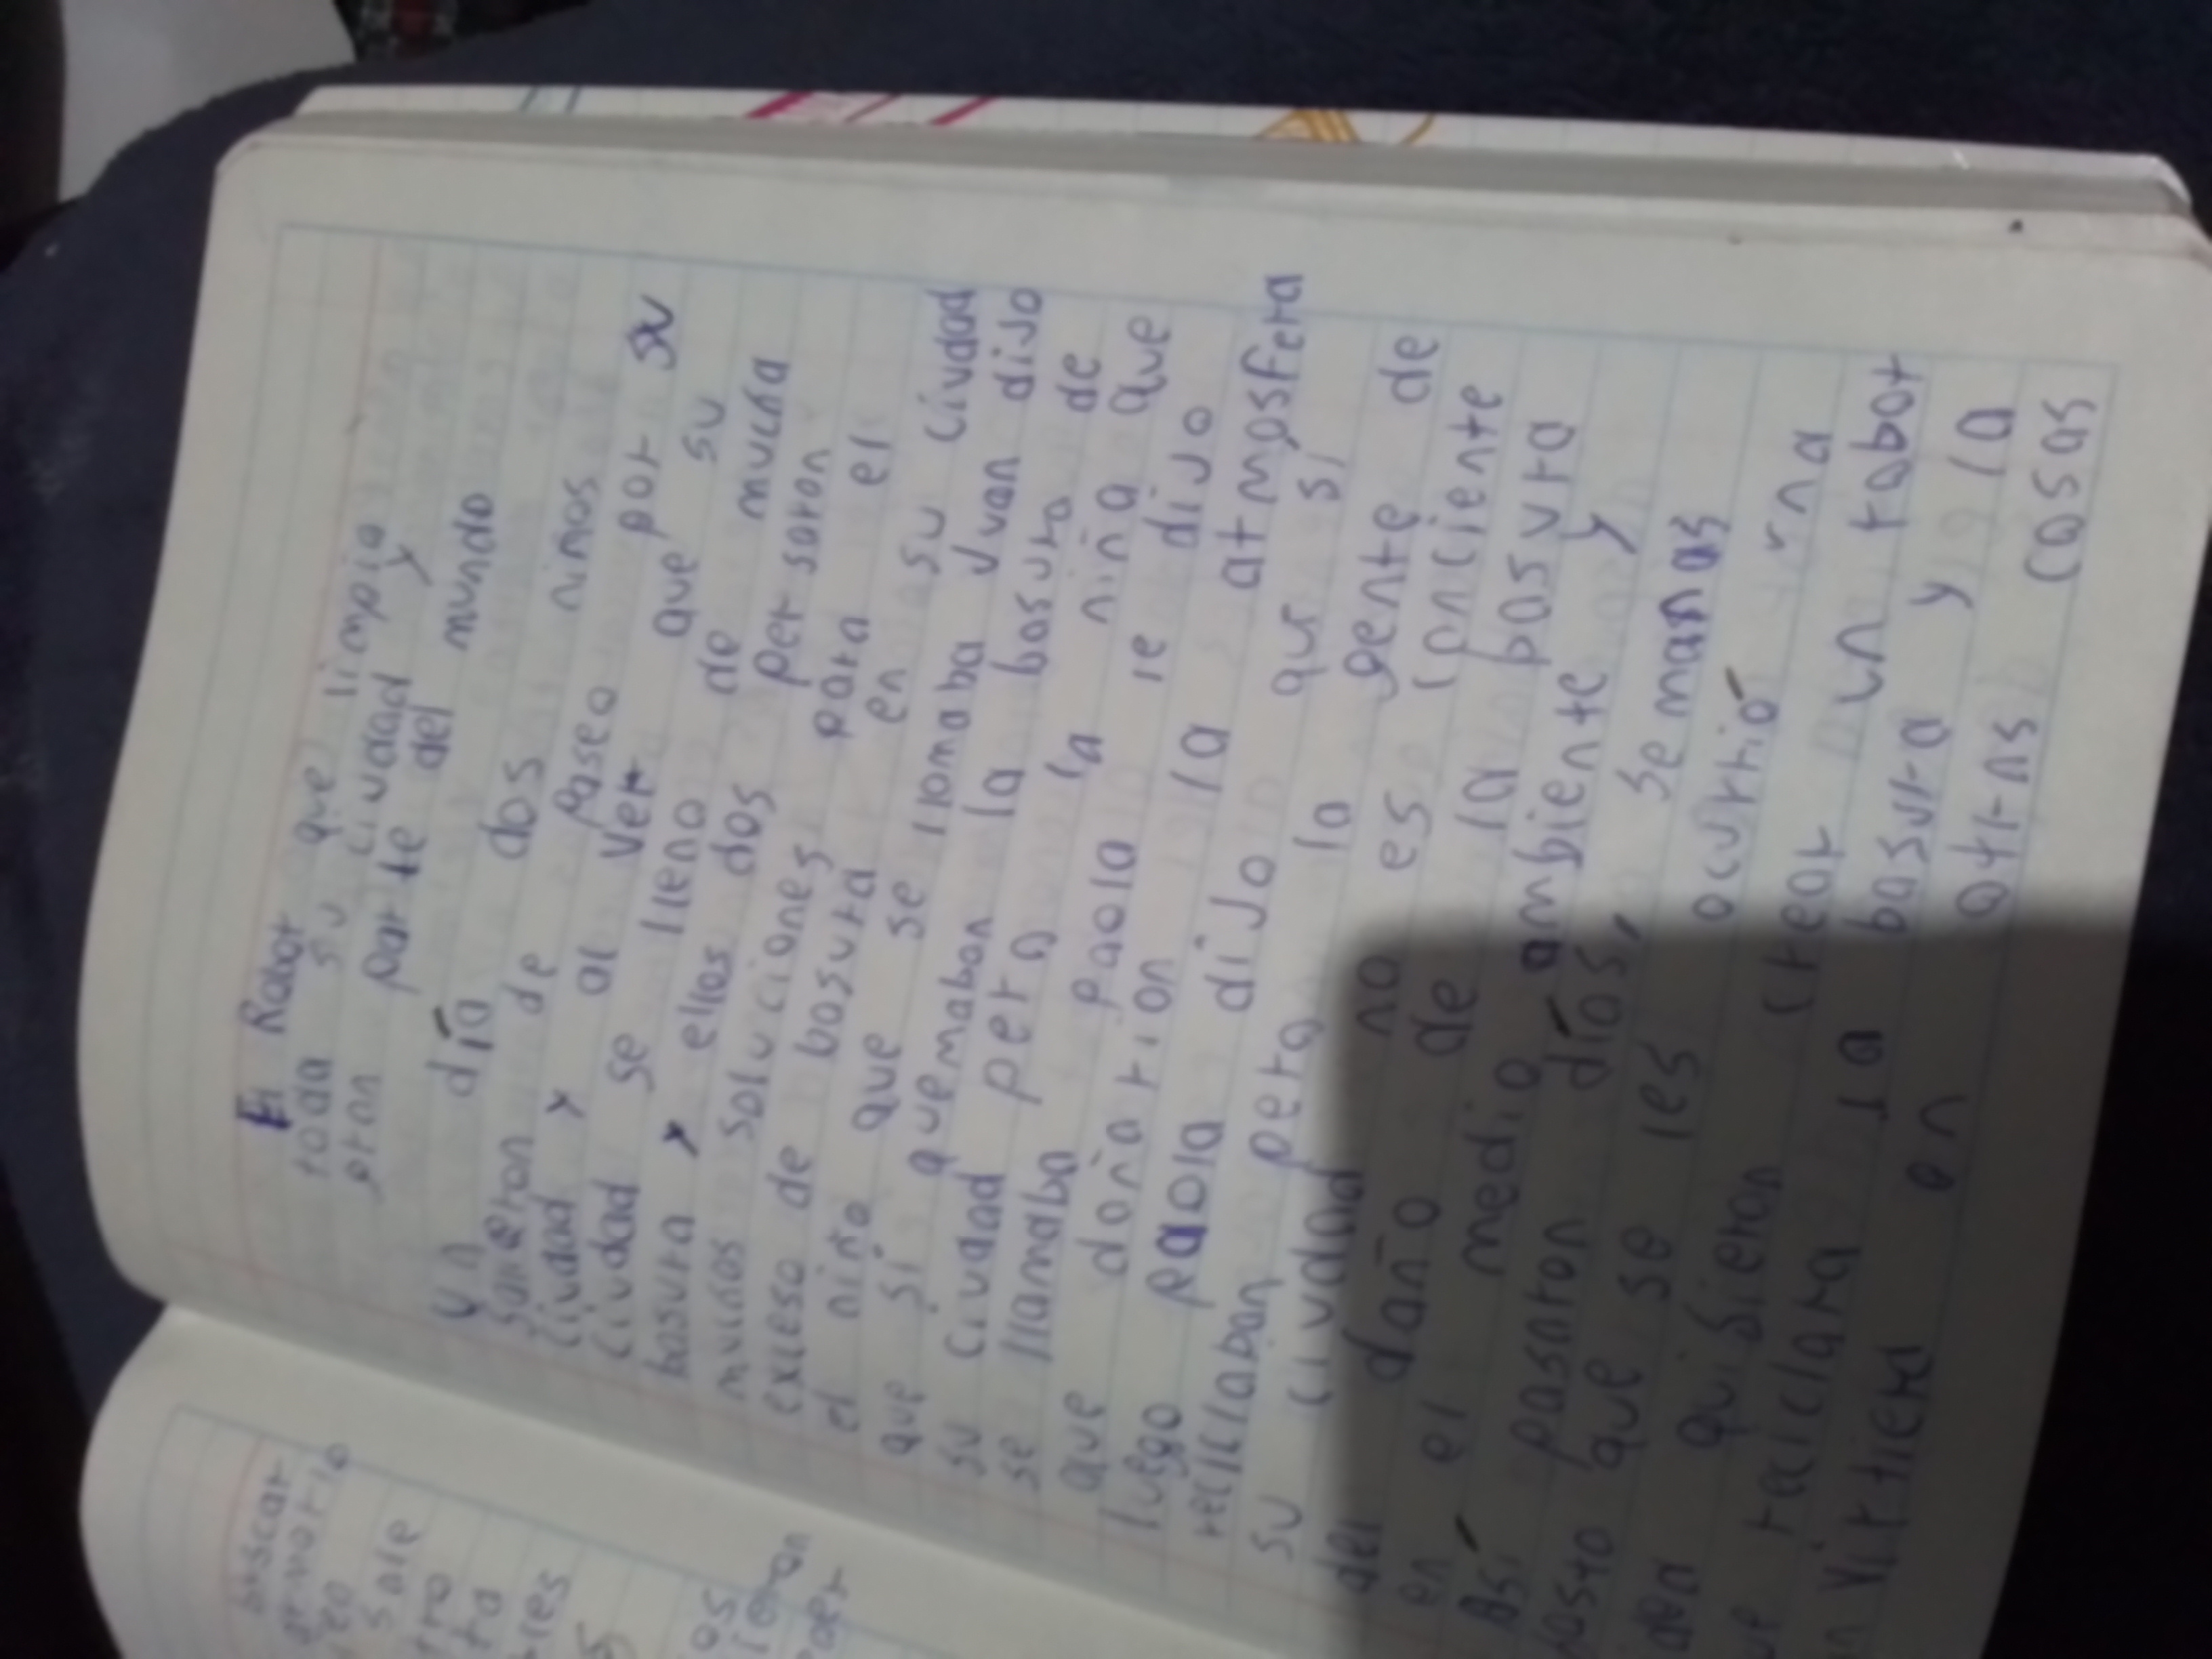 El Robot que limpia
toda su ciudad y
gran parte del mundo
Un día dos niños
salieron de paseo por su
ciudad y al ver que su
ciudad se lleno de mucha
basura y ellos dos pensaron
muchas soluciones para el
exceso de basura en su ciudad
el niño que se llamaba Juan dijo
que si quemaban la basura de
su ciudad pero la niña que
se llamaba paola le dijo
que dañarion la atmosfera
luego paola dijo que si
reciclaban pero la gente de
su ciudad no es conciente
del daño de la basura
en el medio ambiente y
Así pasaron días, semanas
justo que se les ocurrió una
idea quisieron crear un robot
que reciclara la basura y la
en otras cosas
buscar
sale